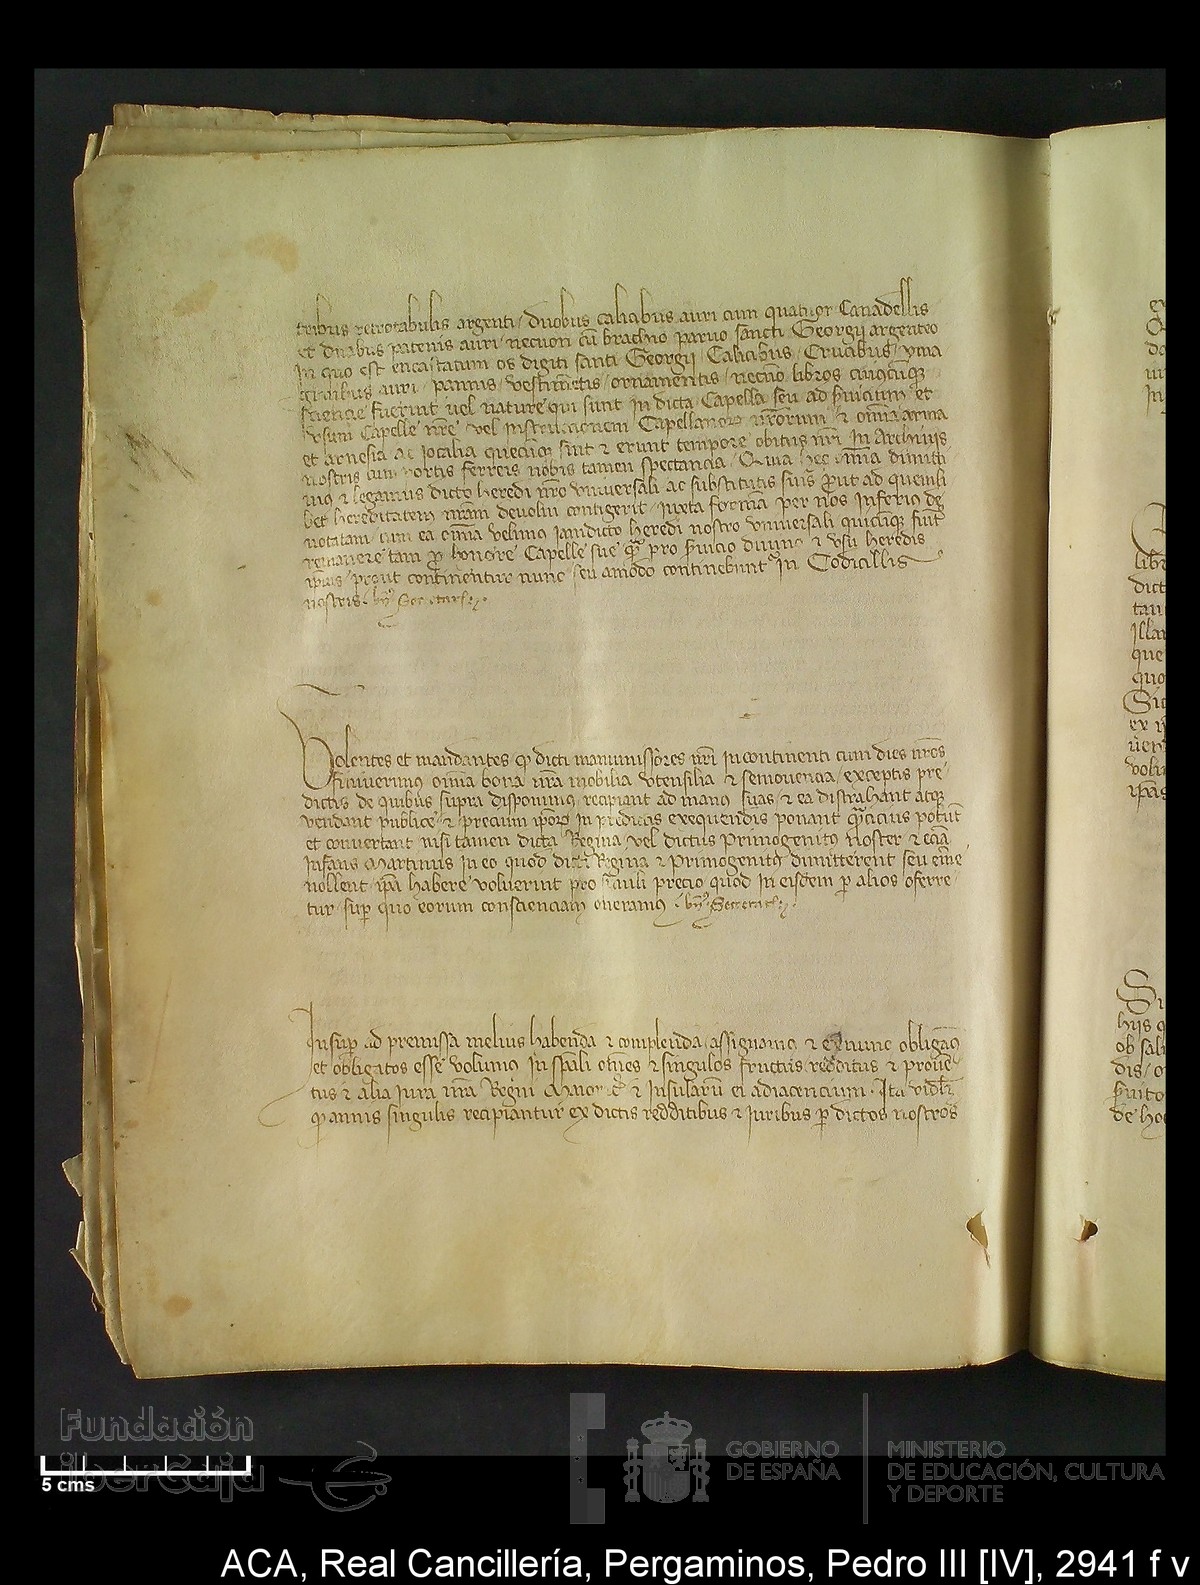 tribus retrotabulis argenti / duobus calicibus auri cum quatuor Canadellis
et duabus patenis auri / necnon cu brachio paruo sancti Georgij argenteo
in quo est encastatum os digiti santi Georgij / Calicibus / Crucibus / yma
ginibus auri / pannis / vestimetis / ornamentis / necno libros cuiuscuqz
sciencie fuerint uel nature qui sunt in dicta Capella seu ad seruicium et
vsum Capelle nre vel instruccionem Capellanor nrorum / et omia arma
et arnesia ac iocalia quecuqz sint et erunt tempore obitus nri in Archiuis
nostris cum portis ferreis nobis tamen spectancia / Quia hec omia dimitti
mus et legamus dicto heredi nro vniuersali ac substitutis suis put ad quemli
bet hereditatem nram deuolui contigerit / iuxta formam per nos inferius de
notatam / cum ea omia velimus iamdicto heredi nostro vniuersali quicuqz fuit
remanere tam p honore Capelle sue qm pro seruicio diuino et vsu heredis
ipius / prout continentur nunc / seu amodo continebunt in Codicillis
nostris. Secretar
Volentes et mandantes q dicti manumissores nri incontinenti cum dies nros
finiuerimus omia bona nra mobilia vtensilia et semouencia / exceptis pre
dictis de quibus supra disponimus recipiant ad manus suas / et ea distrahant atqz
vendant publice / et precium ipor in predictis exequendis ponant qm cicius potunt
et conuertant / nisi tamen dicta Regina vel dictus Primogenitus noster et ecia
Infans Martinus in eo quod dicti Regina et Primogenitus dimitterent seu eme
nollent ipa habere voluerint pro tanti precio quod in eisdem p alios offerre
tur / sup quo eorum conscienciam oneramus. Secretar
Insup ad premissa melius habenda et complenda / assignamus et ex nunc obligam
et obligatos esse volumus in spali omes et singulos fructus redditus et prouen
tus et alia iura nra Regni Maior et Insularu ei adiacencium. Ita videl
q annis singulis recipiantur ex dictis redditibus et iuribus p dictos nostros
libr
dict
tan
Illa
que
quo
Sic
ex
volu
ipas
Si
hijs q
ob sal
dis / o
de ho
Fundación
iberCaja
5 cms
GOBIERNO
DE ESPAÑA
MINISTERIO
DE EDUCACIÓN, CULTURA
Y DEPORTE
ACA, Real Cancillería, Pergaminos, Pedro III [IV], 2941 f v